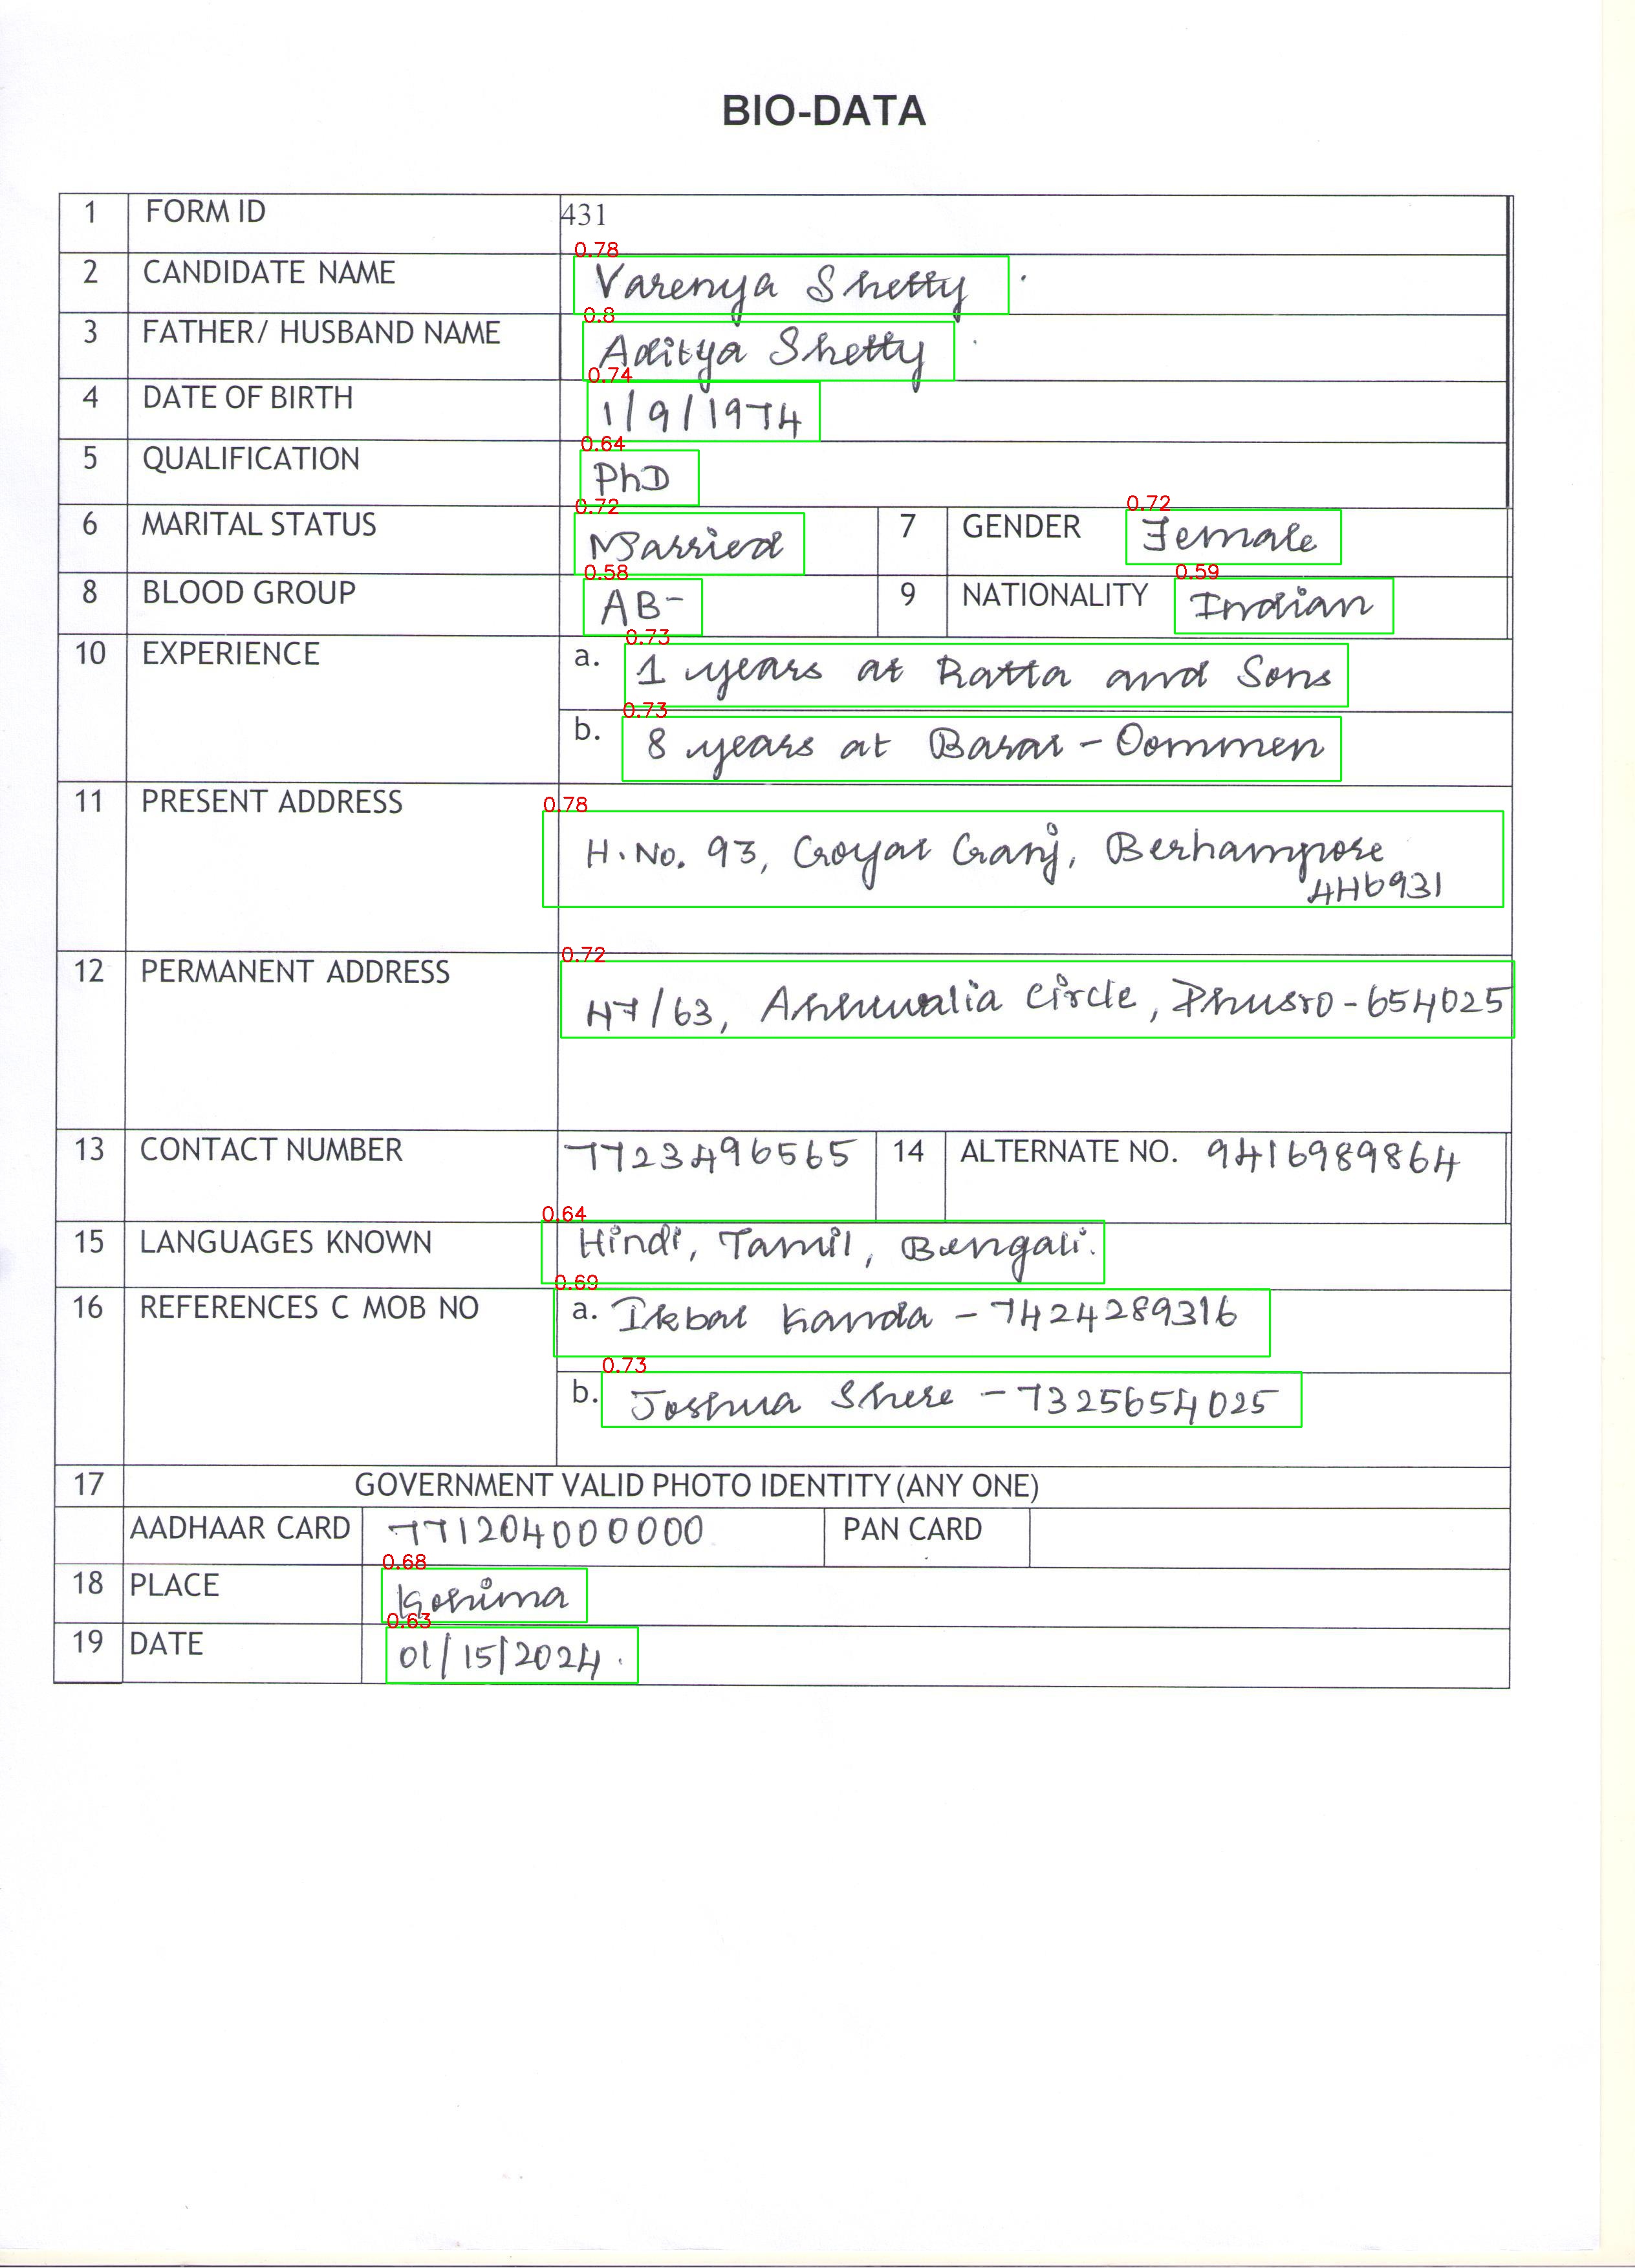 BIO-DATA
1 FORM ID 431
0.78
2 CANDIDATE NAME Varenya Shetty
0.8
3 FATHER/ HUSBAND NAME Aditya Shetty
0.74
4 DATE OF BIRTH 1/9/1974
0.64
5 QUALIFICATION PhD
0.72 0.72
6 MARITAL STATUS Married 7 GENDER Female
0.58 0.59
8 BLOOD GROUP AB- 9 NATIONALITY Indian
0.73
10 EXPERIENCE a. 1 years at Ratta and Sons
0.73
b. 8 years at Basar - Oommen
0.78
11 PRESENT ADDRESS H.No. 93, Goyal Ganj, Berhampore
446931
0.72
12 PERMANENT ADDRESS H7/63, Ahluwalia Circle, Phusro-654025
13 CONTACT NUMBER 7723496565 14 ALTERNATE NO. 9416989864
0.64
15 LANGUAGES KNOWN Hindi, Tamil, Bengali.
0.69
16 REFERENCES C MOB NO a. Ikbal Kanda - 7424289316
0.73
b. Joshua Shere - 7325654025
17 GOVERNMENT VALID PHOTO IDENTITY (ANY ONE)
AADHAAR CARD 771204000000 PAN CARD
0.68
18 PLACE Kohima
0.63
19 DATE 01/15/2024.